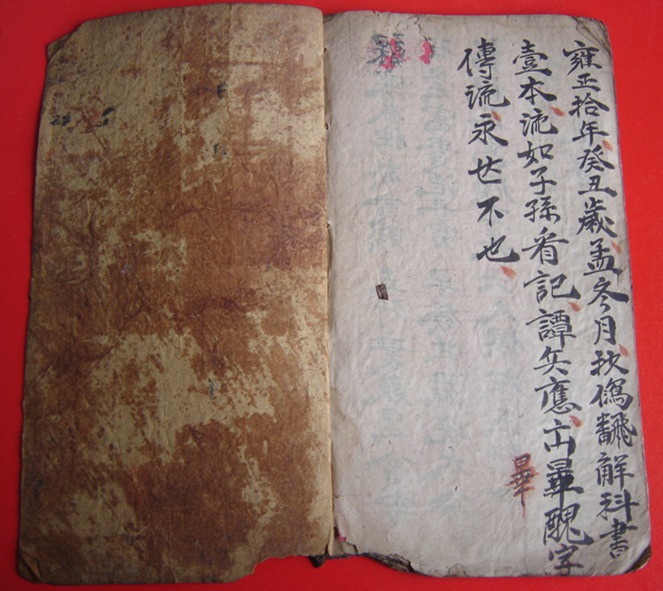 雍正拾年癸丑歲孟冬月抄偽飜解科書
壹本流如子孫看記譚兵應占畢醜字
傳流永世不也
畢